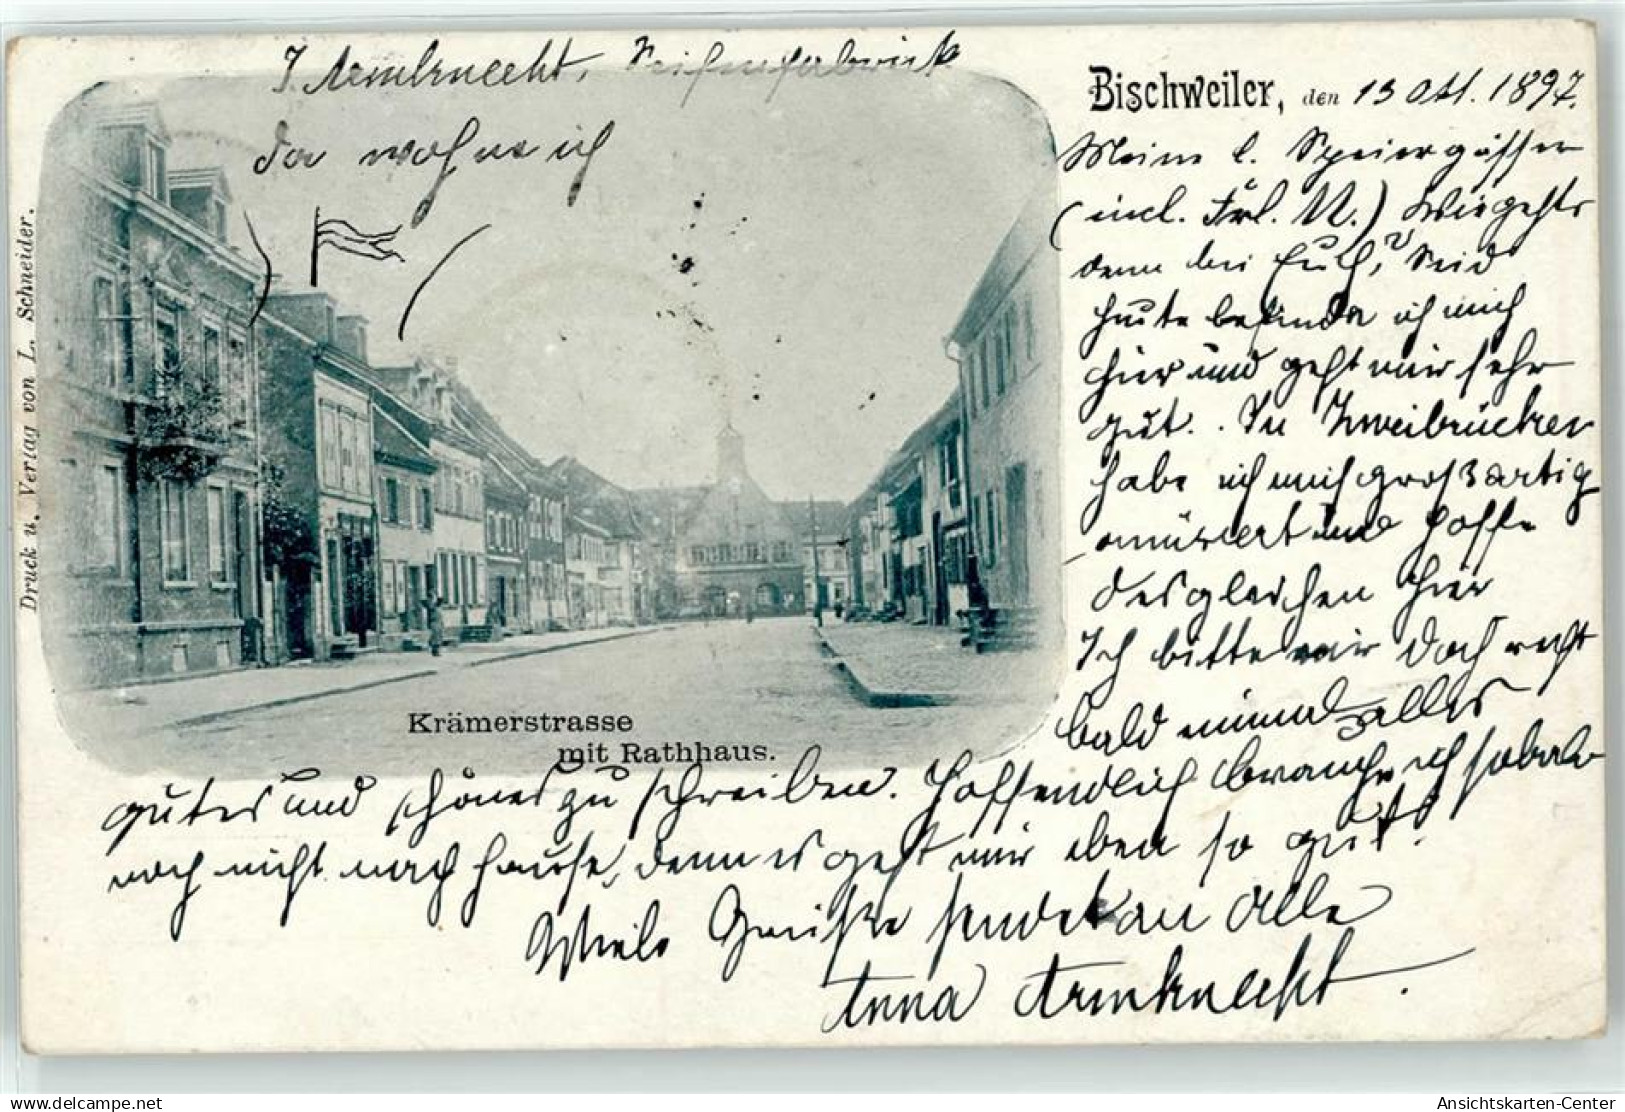 J. Armknecht, Seifenfabrik
da wohne ich
Bischweiler, den 13 Okt. 1897.
Meine l. Speiergässer
(incl. Frl. N.) Wie gehts
denn bei Euch? Seid
heute befinde ich mich
hier und geht mir sehr
gut. In Zweibrücken
habe ich mich großartig
amüsiert und hoffe
desgleichen hier
Ich bitte mir doch recht
bald einmal alles
gutes und schönes zu schreiben. Hoffendlich brauche ich sobald
noch nicht nach hause, denn es geht mir eben so gut!
Viele Grüße sendet an Alle
Anna Armknecht.
Krämerstrasse
mit Rathhaus.
Druck u. Verlag von L. Schneider.
https://www.delcampe.net
Ansichtskarten-Center